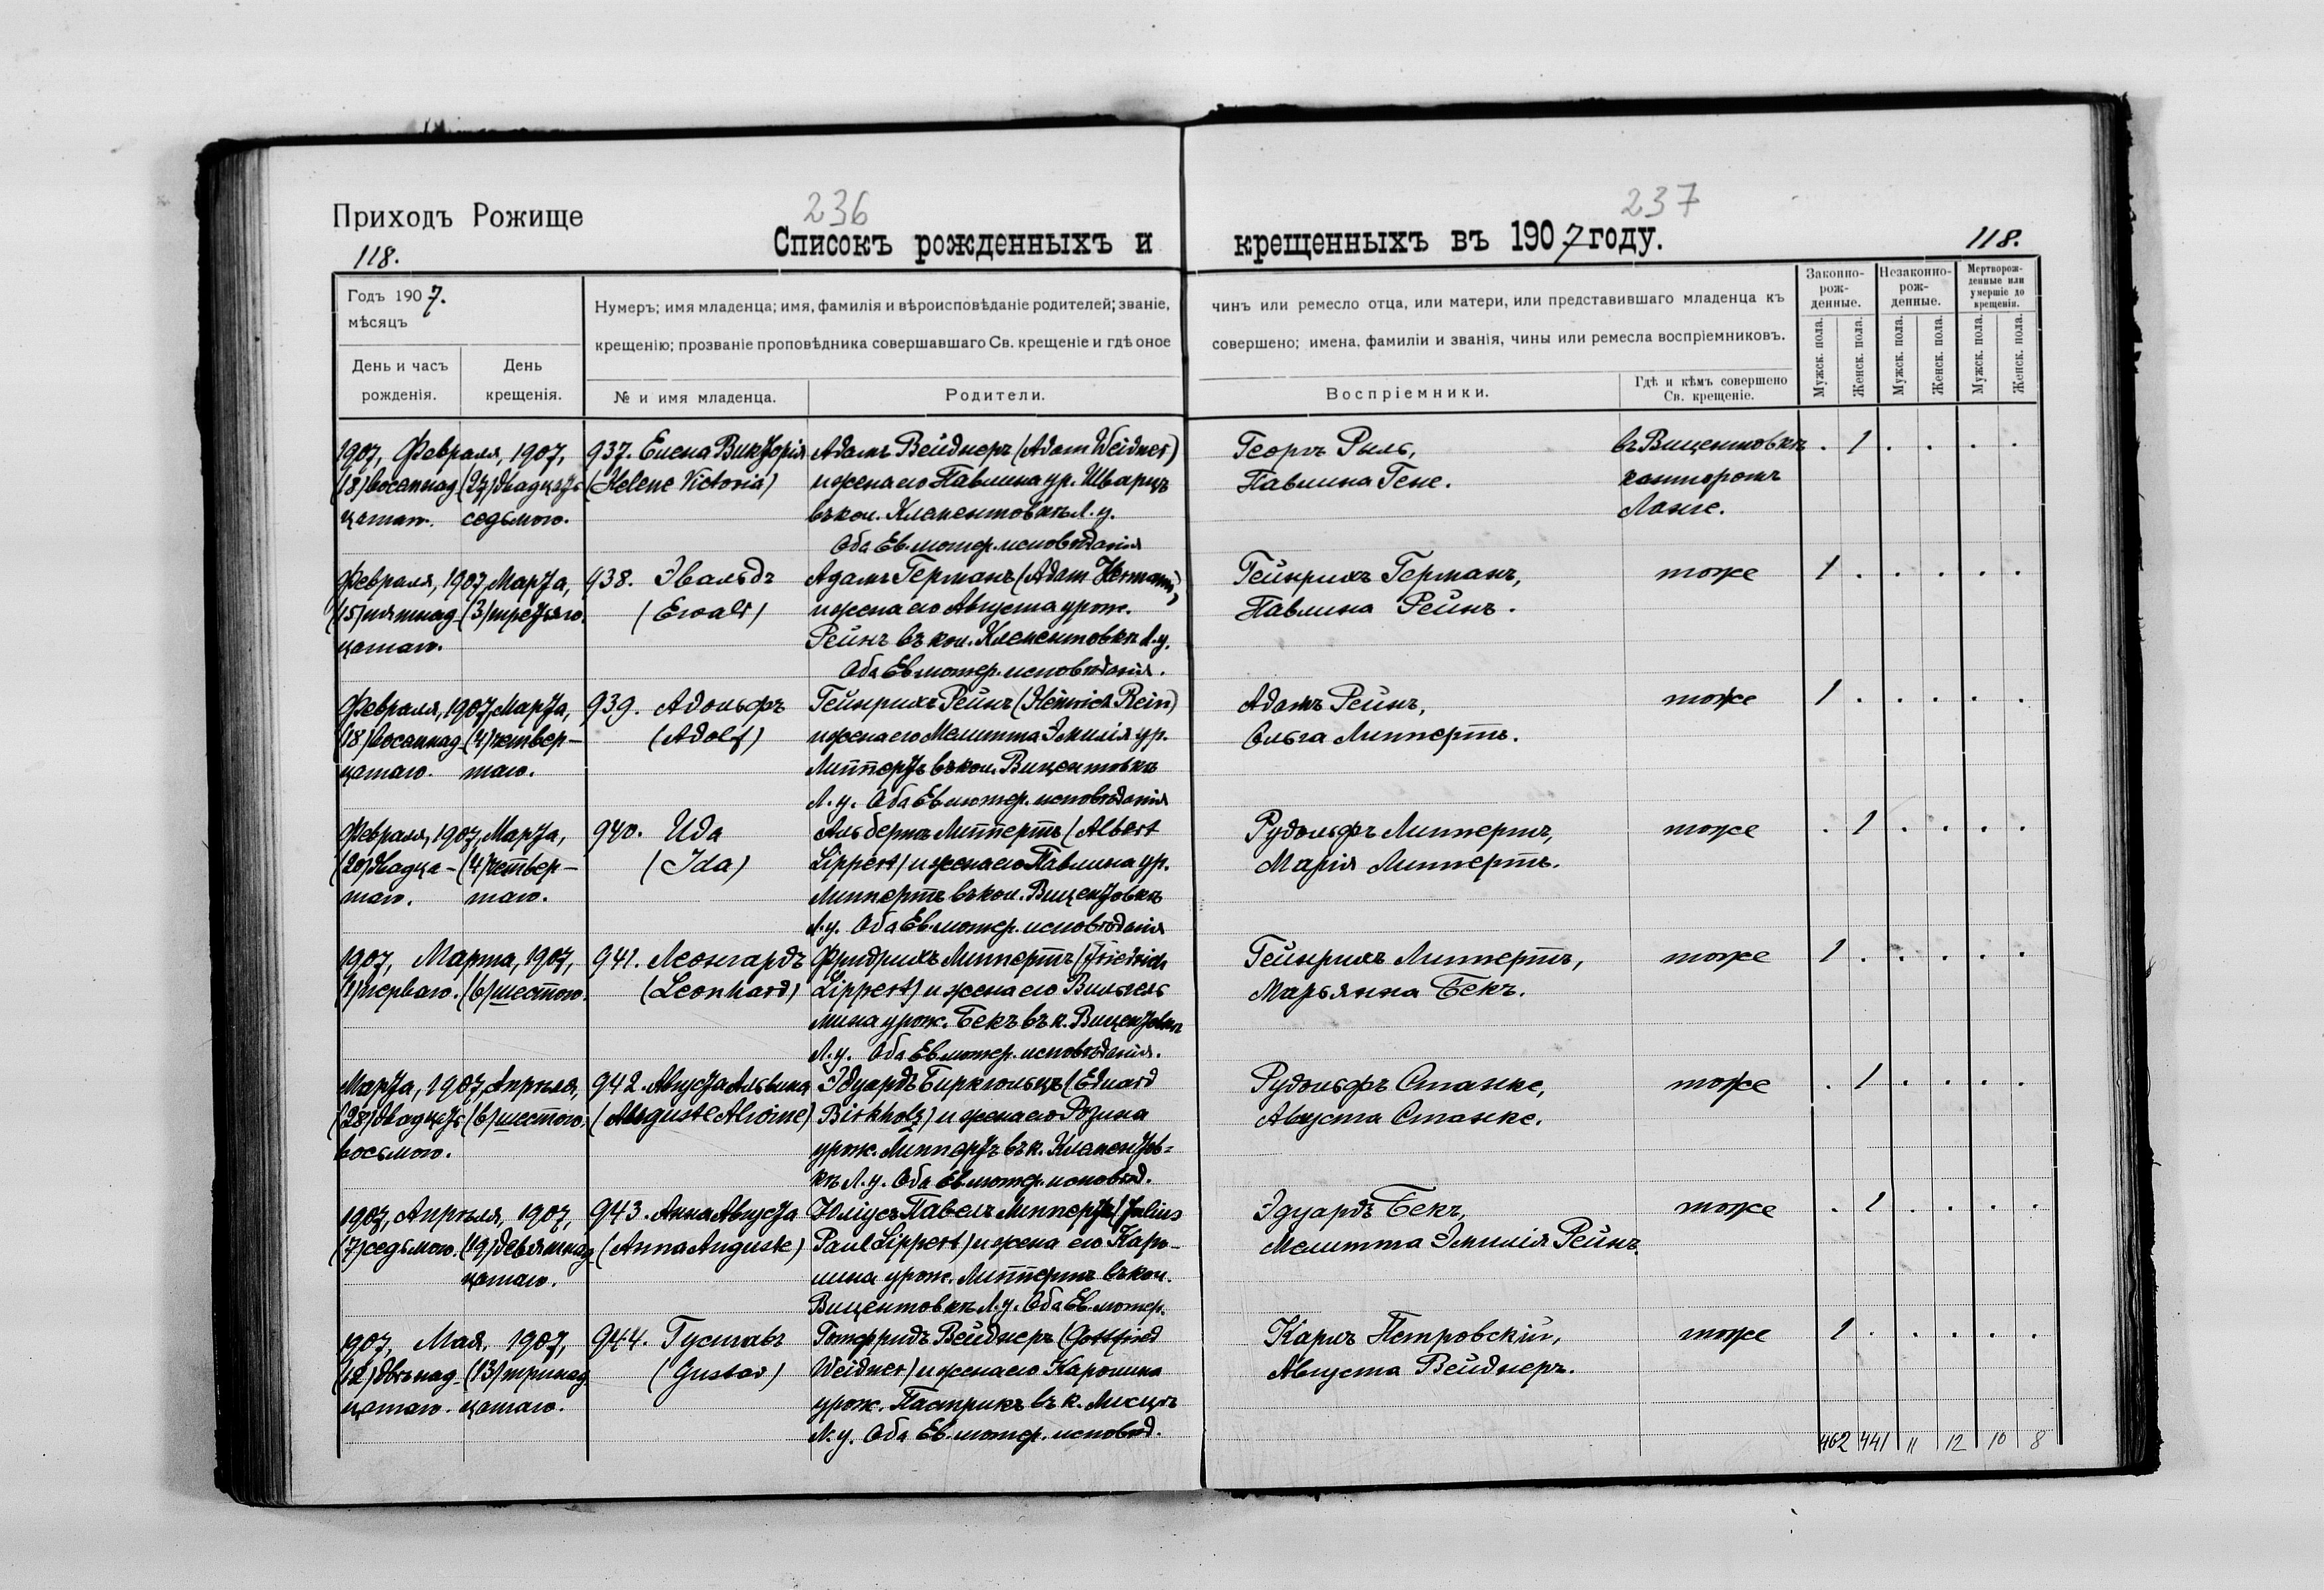 236
237
Приходъ Рожище
118.
Списокъ рожденныхъ и
крещенныхъ въ 1907 году.
118.
Годъ 1907.
мѣсяцъ
День и часъ рожденія.
День крещенія.
Нумеръ; имя младенца; имя, фамилія и вѣроисповѣданіе родителей; званіе,
чинъ или ремесло отца, или матери, или представившаго младенца къ
крещенію; прозваніе проповѣдника совершавшаго Св. крещеніе и гдѣ оное
совершено; имена, фамиліи и званія, чины или ремесла воспріемниковъ.
№ и имя младенца.
Родители.
Воспріемники.
Гдѣ и кѣмъ совершено
Св. крещеніе.
Законно-
рож-
денные.
Незаконно-
рож-
денные.
Мертворож-
денные или
умершіе до
крещенія.
Мужск. пола.
Женск. пола.
Мужск. пола.
Женск. пола.
Мужск. пола.
Женск. пола.
1907, Февраля, 1907, 937. Елена Викторія Адамъ Вейднеръ (Adam Weidner) Георгъ Рыль, въ Вицентовкѣ . 1 . . . .
(18) восемнад- (27) двадцать (Helene Victoria) и жена его Павлина ур. Шварцъ Павлина Гене. канторомъ
цатаго. седьмого. въ кол. Клементовкѣ Л. у. Ланге.
Оба Ев. лютер. исповѣданія
Февраля, 1907, Марта, 938. Эвальдъ Адамъ Германъ (Adam Hermann) Гейнрихъ Германъ, тоже 1 . . . . .
(15) пятнад- (3) третьяго. (Ewalt) и жена его Августа урож. Павлина Рейнъ.
цатаго. Рейнъ въ кол. Клементовкѣ Л. у.
Оба Ев. лютер. исповѣданія.
Февраля, 1907, Марта, 939. Адольфъ Гейнрихъ Рейнъ (Heinrich Rein) Адамъ Рейнъ, тоже 1 . . . . .
(18) восемнад- (4) четвер- (Adolf) и жена его Мелитта Эмилія ур. Ольга Липпертъ.
цатаго. таго. Липпертъ въ кол. Вицентовкѣ
Л. у. Оба Ев. лютер. исповѣданія
Февраля, 1907, Марта, 940. Ида Альбертъ Липпертъ (Albert Рудольфъ Липпертъ, тоже . 1 . . . .
(20) двадца- (4) четвер- (Ida) Lippert) и жена его Павлина ур. Марія Липпертъ.
таго. таго. Липпертъ въ кол. Вицентовкѣ
Л. у. Оба Ев. лютер. исповѣданія
1907, Марта, 1907, 941. Леонгардъ Фридрихъ Липпертъ (Friedrich Гейнрихъ Липпертъ, тоже 1 . . . . .
(1) перваго. (6) шестого. (Leonhard) Lippert) и жена его Вильгель Марьянна Бекъ.
мина урож. Бекъ въ к. Вицентовкѣ
Л. у. Оба Ев. лютер. исповѣданія.
Марта, 1907, Апрѣля, 942. Августа Альвина Эдуардъ Биркгольцъ (Eduard Рудольфъ Станке, тоже . 1 . . . .
(28) двадцать (6) шестого. (Auguste Alwine) Birkholz) и жена его Розина Августа Станке.
восьмого. урож. Липпертъ въ к. Клементов-
кѣ Л. у. Оба Ев. лютер. исповѣд.
1907, Апрѣля, 1907, 943. Анна Августа Юліусъ Павелъ Липпертъ (Julius Эдуардъ Бекъ, тоже . 1 . . . .
(7) седьмого. (19) девятнад- (Anna Auguste) Paul Lippert) и жена его Каро- Мелитта Эмилія Рейнъ.
цатаго. лина урож. Липпертъ въ кол.
Вицентовкѣ Л. у. Оба Ев. лютер.
1907, Мая, 1907, 944. Густавъ Готфридъ Вейднеръ (Gottfried Карлъ Петровскій, тоже 1 . . . . .
(12) двѣнад- (13) тринад- (Gustav) Weidner) и жена его Каролина Августа Вейднеръ.
цатаго. цатаго. урож. Пастрикъ въ к.
Л. у. Оба Ев. лютер. исповѣд.
462 441 11 12 10 8